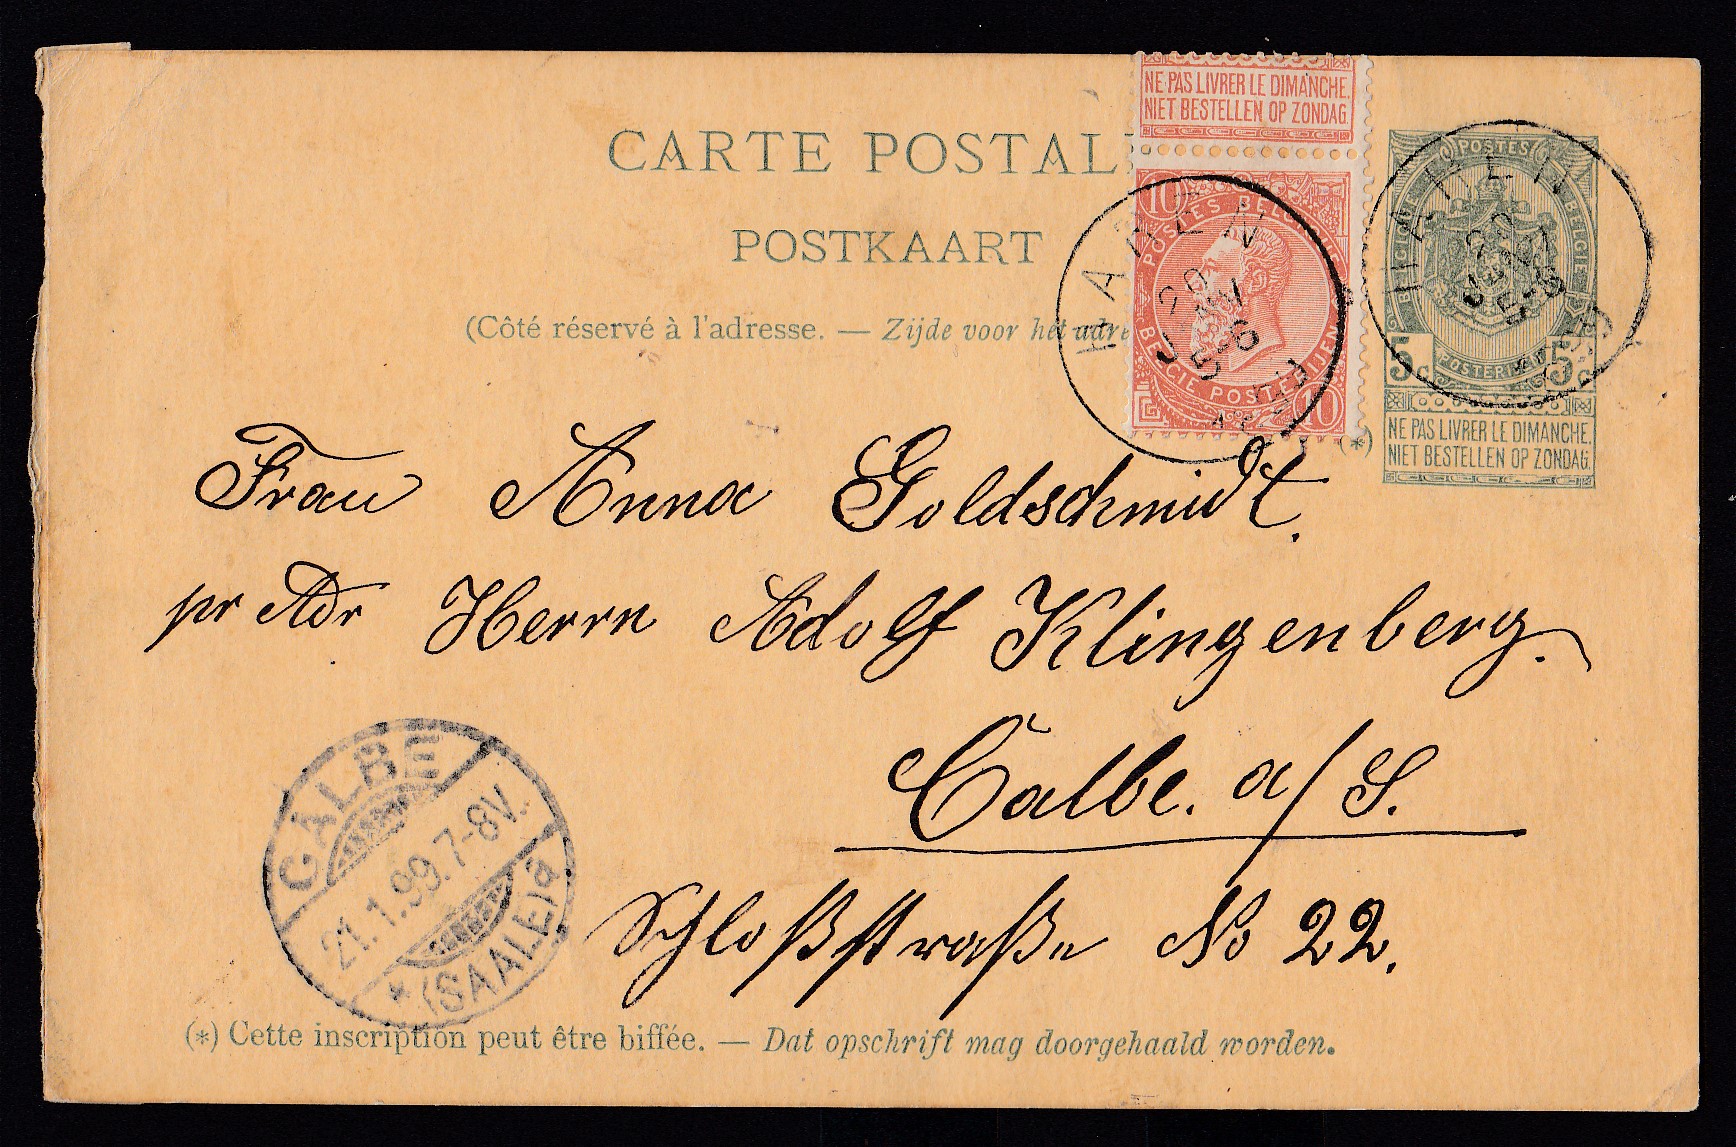 NE PAS LIVRER LE DIMANCHE.
NIET BESTELLEN OP ZONDAG.
CARTE POSTAL
POSTKAART
(Côté réservé à l'adresse. — Zijde voor het adre
(*)
10 POSTES BELGIQUE
BELGIE POSTERIJEN 10
HAREN
20
JANV
5-6
POSTES
BELGIQUE BELGIE
POSTERIJEN
5c 5c
NE PAS LIVRER LE DIMANCHE.
NIET BESTELLEN OP ZONDAG.
HAREN
20
JANV
5-6
Frau Anna Goldschmidt.
pr Adr Herrn Adolf Klingenberg.
Calbe. a/S.
Schloßstraße No 22.
CALBE
21.1.99.7-8V.
* (SAALE) a
(*) Cette inscription peut être biffée. — Dat opschrift mag doorgehaald worden.